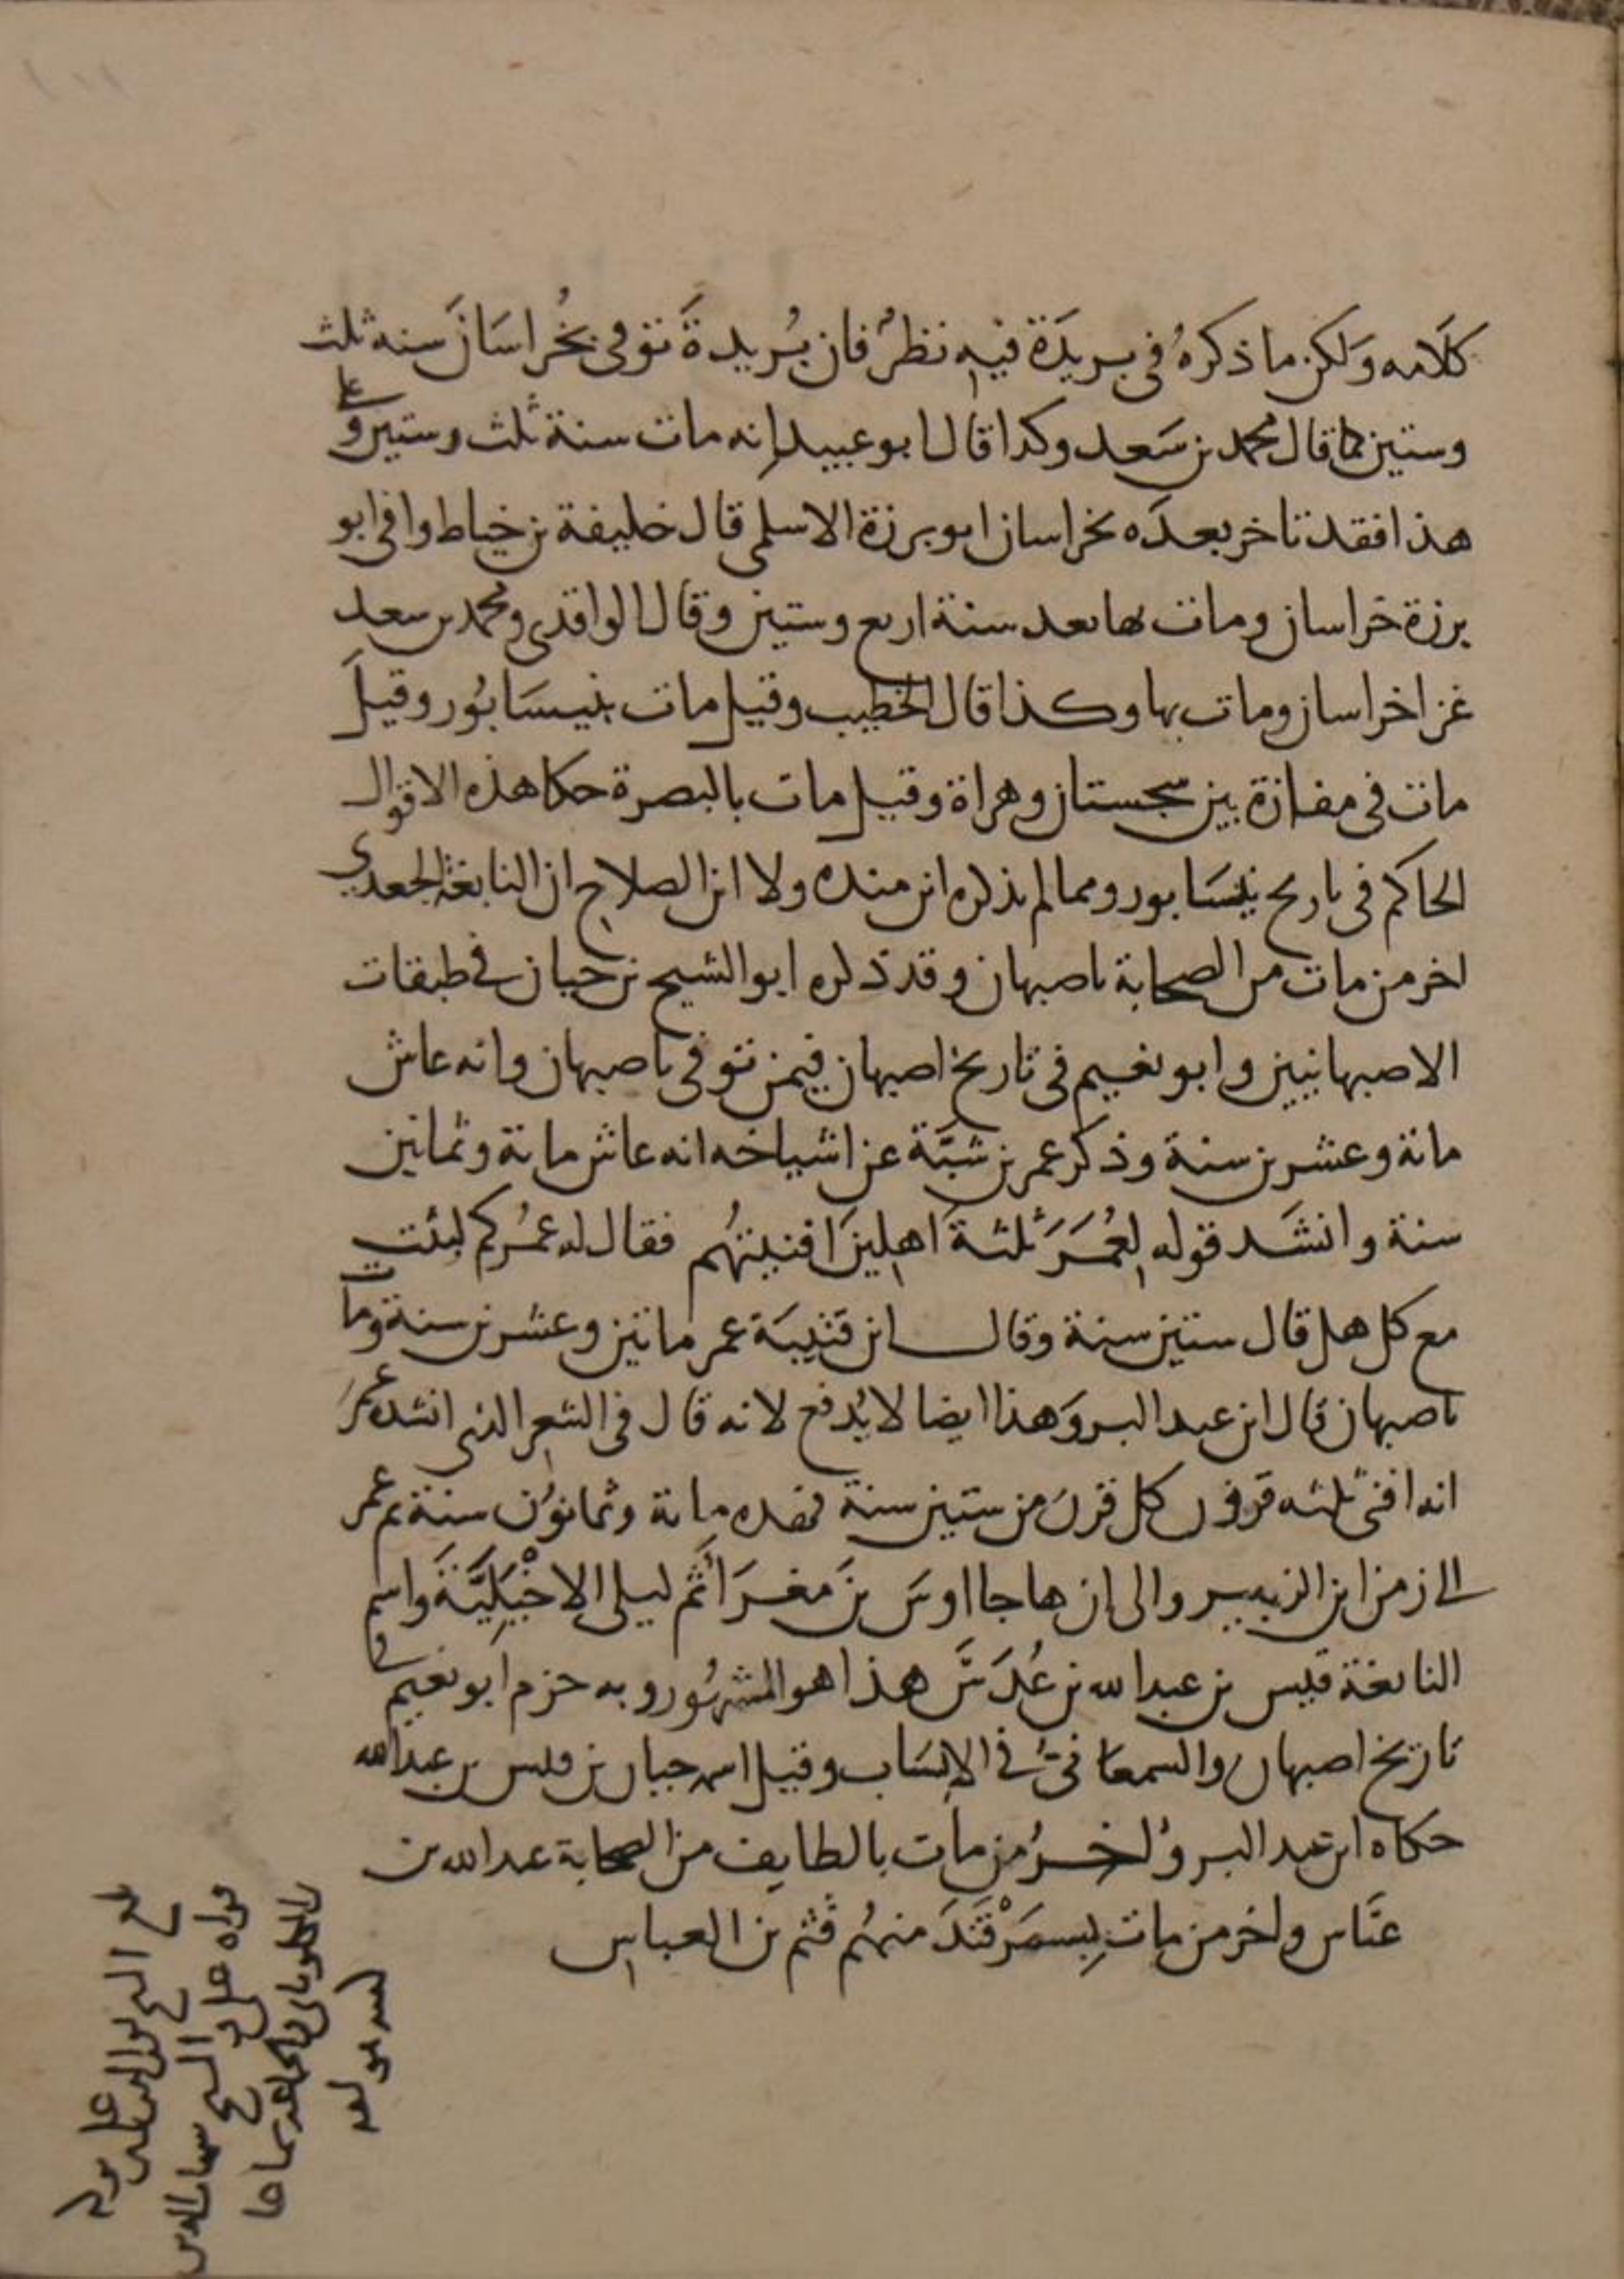 كلامه ولكن ما ذكرهُ في بريدَة فيهِ نظرٌ فان بُريدةَ توفي بخُراسَانَ سنه ثلث
وستين كما قال محمد بن سَعد وكدا قال ابو عبيد إنه مات سنة ثلث وستين وعلى
هذا فقد تاخر بعدَه بخراسان ابو برزة الاسلمي قال خليفة بن خياط وافى ابو
برزة خراسان ومات بها بعد سنة اربع وستين وقال الواقدي ومحمد بن سعد
غزا خراسان ومات بها وكذا قال الخطيب وقيل مات بنيسَابُور وقيلَ
مات في مفازة بين سجستان وهراة وقيل مات بالبصرة حكا هذه الاقوال
الحاكم في تاريخ نيسَابور ومما لم يذكره ابن منده ولا ابن الصلاح ان النابغة الجعدي
اخر من مات من الصحابة باصبهان وقد ذكره ابو الشيخ بن حيان في طبقات
الاصبهانيين وابو نعيم في تاريخ اصبهان فيمن توفي باصبهان وانه عاش
مائة وعشرين سنة وذكر عمر بن شبَّة عن اشياخه انه عاش مائة وثمانين
سنة وانشَد قوله لعُمَرَ ثلثة اهلِينَ افنيتهُم فقال له عمُركم لبثت
مع كل اهل قال ستين سنة وقال ابن قتيبَة عمر مائتين وعشرين سنة ومات
باصبهان قال ابن عبد البر وَهذا ايضا لا يُدفع لانه قال في الشعِر الذي انشده عمرَ
انه افنى ثلثه قرون كل قرن من ستين سنة فهذه مائة وثمانوُن سنة ثم عمر
الى زمن ابن الزبير والى ان هاجا اوسَ بنَ مغرَا ثُم ليلى الاخْيَلِيَّةَ واسم
النابغة قيس بن عبد الله بن عُدَسَ هذا هو المشهُور وبه جزم ابو نعيم في
تاريخ اصبهان والسمعاني في الانسَاب وقيل اسمه حبان بن قيس بن عبد الله
حكاه ابن عبد البر واخرُ من مات بالطايف من الصحابة عبد الله بن
عبَّاس واخر من مات بِسمَرْقَندَ منهُم قثم بن العباس